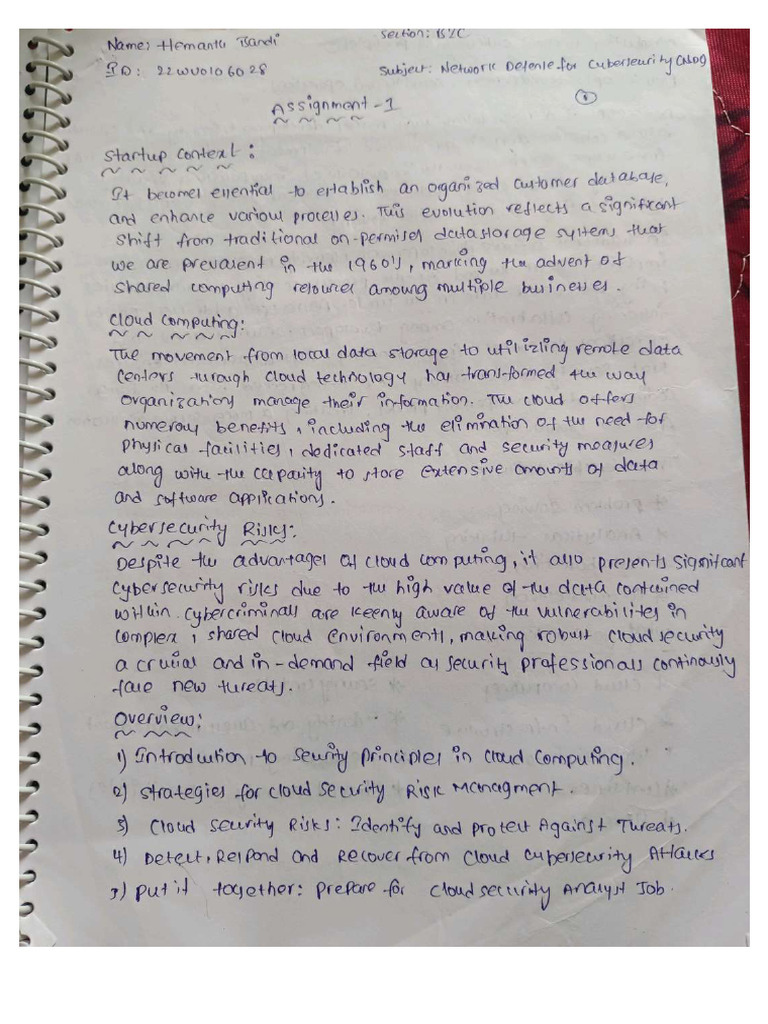 Name: Hemanth Bandi
Section: BYC
ID: 22WU0106028
Subject: Network Defense for Cybersecurity (NDS)
Assignment - 1
①
Startup Context:
It becomes essential to establish an organized customer database,
and enhance various processes. This evolution reflects a significant
shift from traditional on-permises data storage systems that
we are prevalent in the 1960's, marking the advent of
shared computing resources amoung multiple businesses.
Cloud Computing:
The movement from local data storage to utilizling remote data
centers through cloud technology has trans-formed the way
organizations manage their information. The cloud offers
numerous benefits, including the elimination of the need for
physical facilities, dedicated staff and security measures
along with the capacity to store extensive amounts of data
and software applications.
Cybersecurity Risks:
Despite the advantages of cloud computing, it also presents significant
cybersecurity risks due to the high value of the data contained
within. Cybercriminals are keenly aware of the vulnerabilites in
complex, shared cloud environments, making robust cloud security
a crucial and in-demand field as security professionals continously
face new threats.
Overview:
1) Introduction to security principles in cloud computing.
2) Strategies for cloud security Risk Managment.
3) Cloud security Risks: Identify and protect Against Threats.
4) Detect, Respond and Recover from Cloud Cybersecurity Attacks
5) put it together: prepare for cloud security Analyst Job.